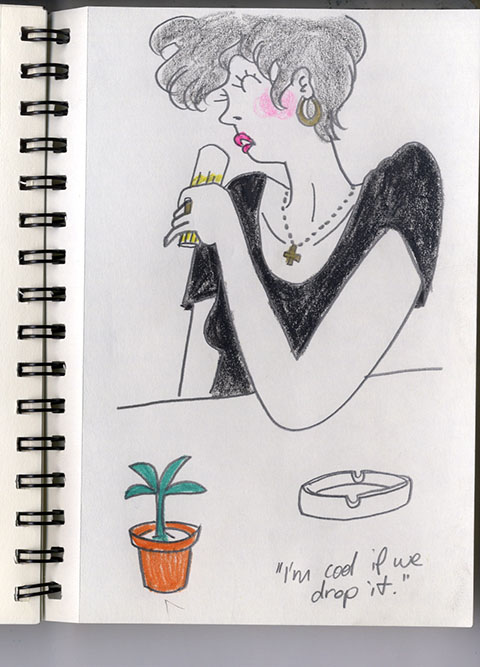 "I'm cool if we
drop it."